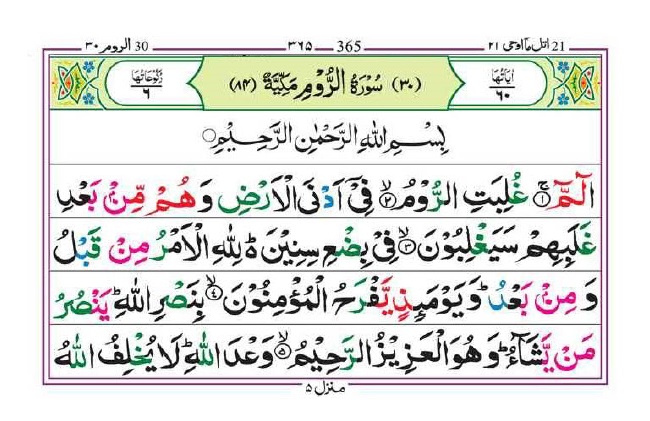 30 الروم ٣٠ 365 ٣٦٥ 21 اتل مآ اوحی ٢١
اٰیَاتُهَا ٦٠ (٣٠) سُوْرَةُ الرُّوْمِ مَكِّيَّةٌ (٨٤) رُكُوْعَاتُهَا ٦
بِسْمِ اللهِ الرَّحْمٰنِ الرَّحِيْمِ
الٓمّٓ ۚ‏﴿۱﴾ غُلِبَتِ الرُّوْمُ ۙ‏﴿۲﴾ فِىْۤ اَدْنَى الْاَرْضِ وَهُمْ مِّنْۢ بَعْدِ
غَلَبِهِمْ سَيَغْلِبُوْنَ ۙ‏﴿۳﴾ فِىْ بِضْعِ سِنِيْنَ ؕ لِلّٰهِ الْاَمْرُ مِنْ قَبْلُ
وَمِنْۢ بَعْدُ ؕ وَيَوْمَئِذٍ يَّفْرَحُ الْمُؤْمِنُوْنَ ۙ‏﴿۴﴾ بِنَصْرِ اللّٰهِ ؕ يَنْصُرُ
مَنْ يَّشَآءُ ؕ وَهُوَ الْعَزِيْزُ الرَّحِيْمُ ۙ‏﴿۵﴾ وَعْدَ اللّٰهِ ؕ لَا يُخْلِفُ اللّٰهُ
منزل ٥